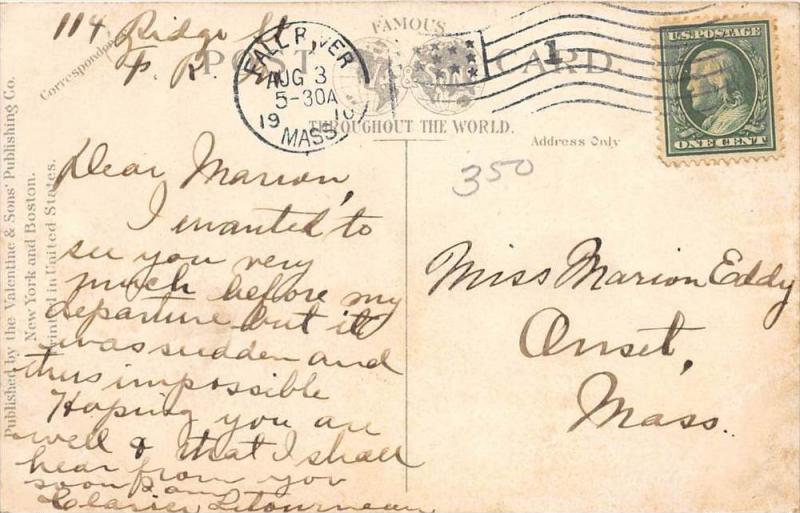 114 Ridge St
F. R.
Correspondence
FAMOUS
POST CARD.
THROUGHOUT THE WORLD.
FALL RIVER
AUG 3
5-30A
1910
MASS.
1
U.S. POSTAGE
ONE CENT
Address Only
350
Published by the Valentine & Sons' Publishing Co.
New York and Boston.
Printed in United States.
Dear Marion,
I wanted to
see you very
much before my
departure but it
was sudden and
thus impossible
Hoping you are
well & that I shall
hear from you
soon I am
Letourneau
Miss Marion Eddy
Onset,
Mass.